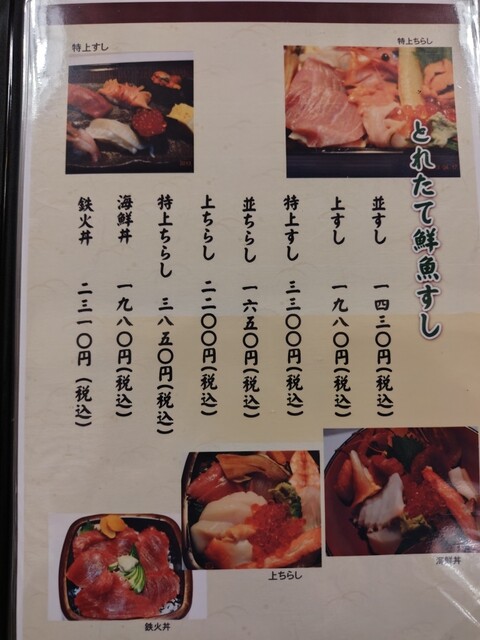 特上すし
特上ちらし
とれたて鮮魚すし
並すし 一四三〇円(税込)
上すし 一九八〇円(税込)
特上すし 三三〇〇円(税込)
並ちらし 一六五〇円(税込)
上ちらし 二二〇〇円(税込)
特上ちらし 三八五〇円(税込)
海鮮丼 一九八〇円(税込)
鉄火丼 二三一〇円(税込)
海鮮丼
上ちらし
鉄火丼